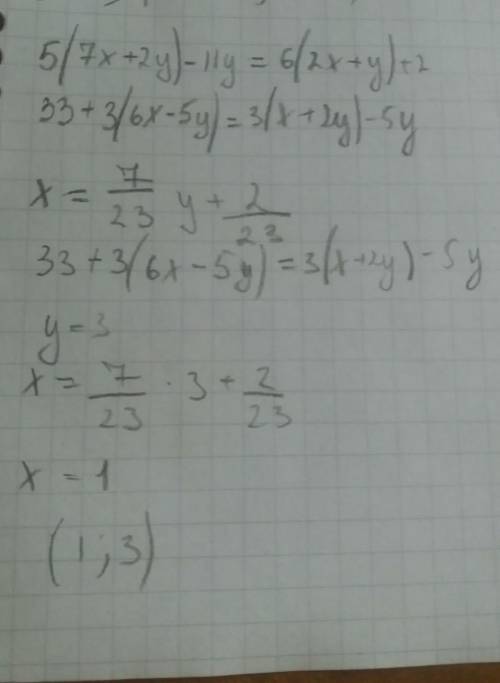 5(7x+2y)-11y = 6(2x+y)+2
33+3(6x-5y)=3(x+2y)-5y
x = 7/23 y + 2/23
33+3(6x-5y)=3(x+2y)-5y
y=3
x = 7/23 · 3 + 2/23
x = 1
(1;3)